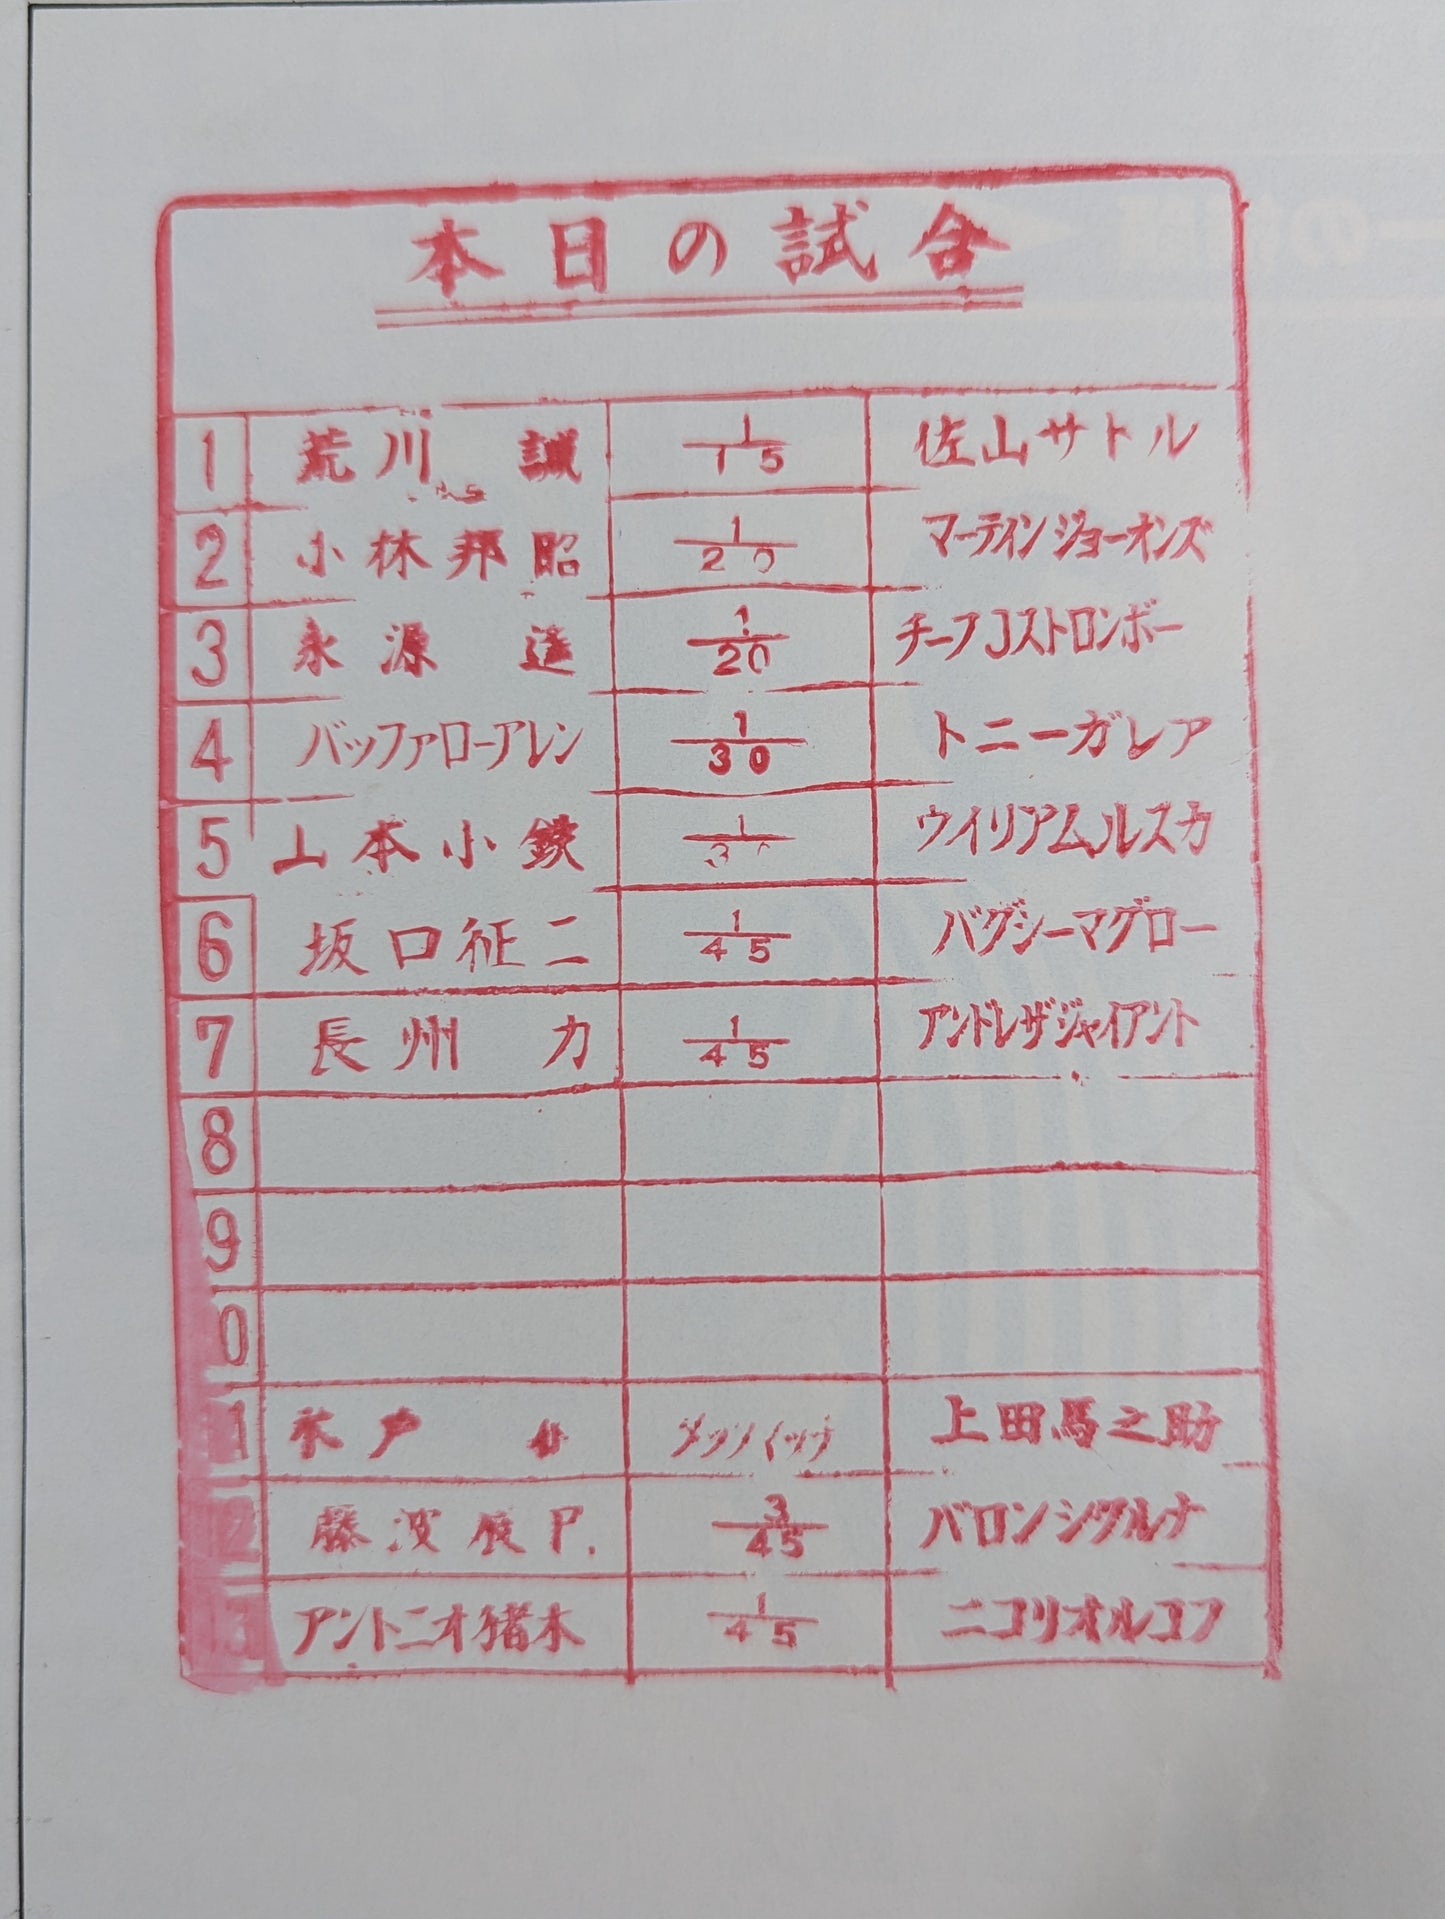 本日の試合
1 荒川 誠 1/15 佐山サトル
2 小林邦昭 1/20 マーティンジョーオンズ
3 永源 遥 1/20 チーフJストロンボー
4 バッファローアレン 1/30 トニーガレア
5 山本小鉄 1/30 ウイリアムルスカ
6 坂口征二 1/45 バグジーマグロー
7 長州 力 1/45 アンドレザジャイアント
8
9
0
1 木戸 上田馬之助
2 藤波辰 3/45 バロンシクルナ
3 アントニオ猪木 1/45 ニコリオルコフ